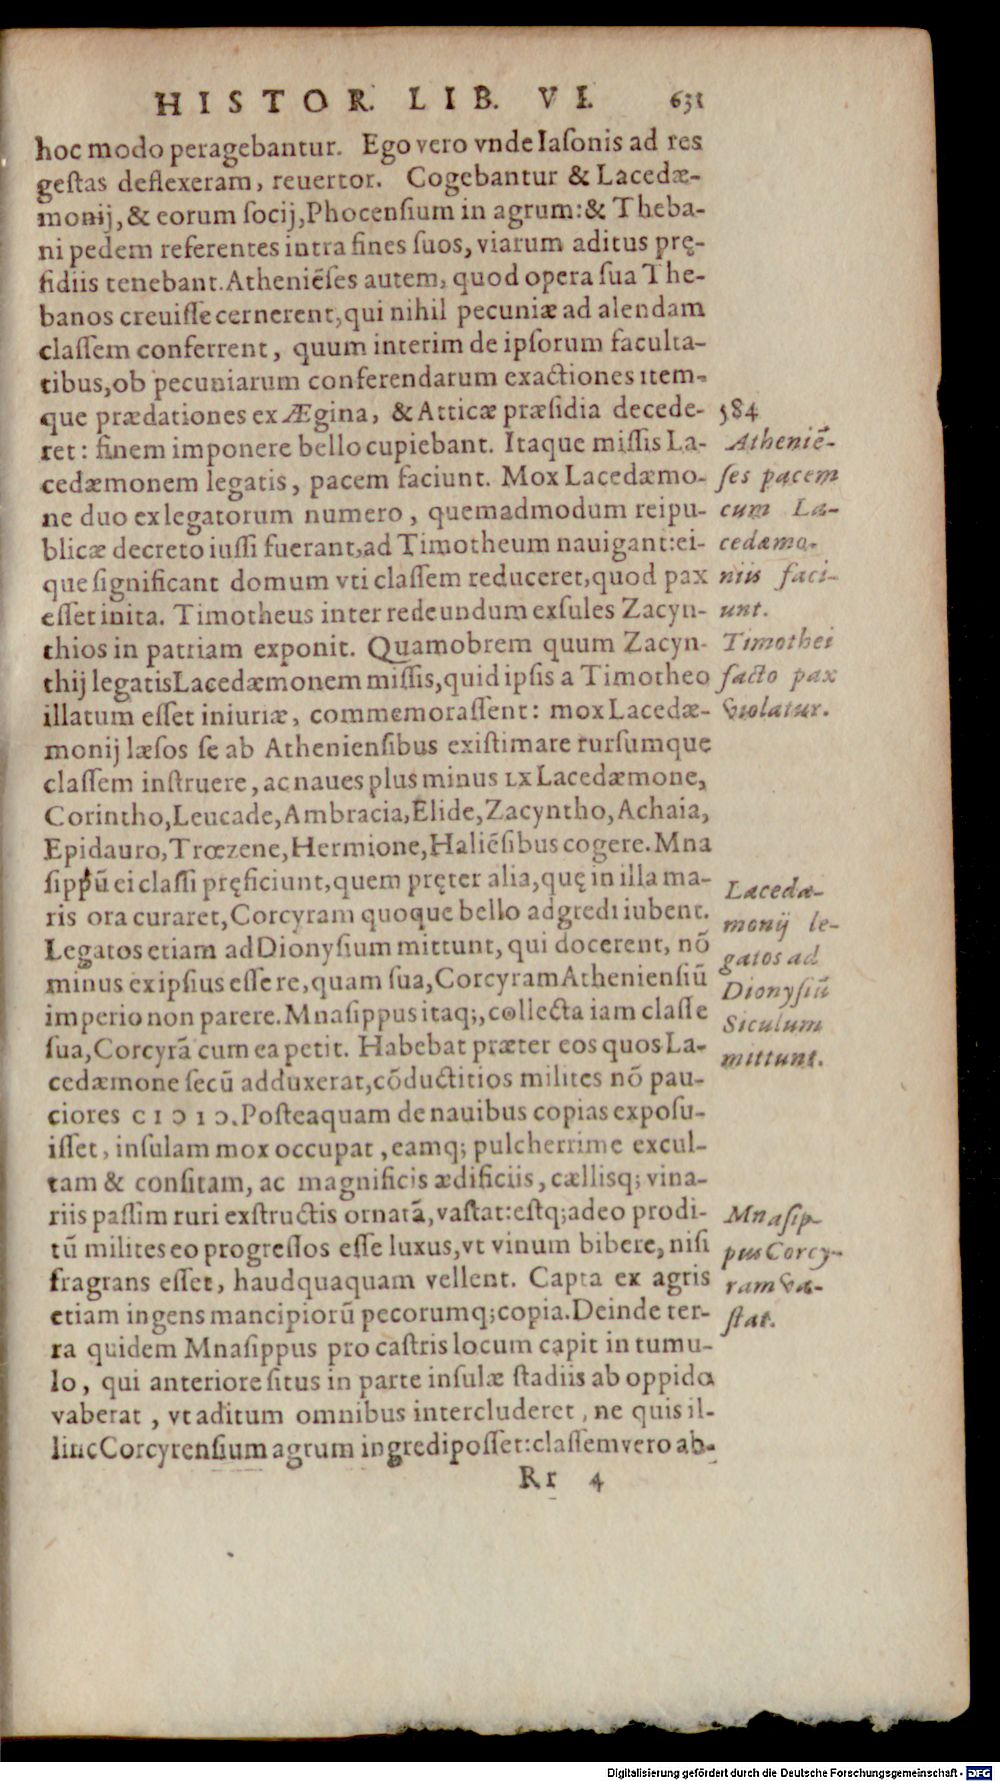 HISTOR. LIB. VI. 631
hoc modo peragebantur. Ego vero vnde Iasonis ad res
gestas deflexeram, reuertor. Cogebantur & Lacedæ-
monij, & eorum socij, Phocensium in agrum: & Theba-
ni pedem referentes intra fines suos, viarum aditus prę-
sidiis tenebant. Atheniẽses autem, quod opera sua The-
banos creuisse cernerent, qui nihil pecuniæ ad alendam
classem conferrent, quum interim de ipsorum faculta-
tibus, ob pecuniarum conferendarum exactiones item-
que prædationes ex Ægina, & Atticæ præsidia decede-
ret: finem imponere bello cupiebant. Itaque missis La-
cedæmonem legatis, pacem faciunt. Mox Lacedæmo-
ne duo ex legatorum numero, quemadmodum reipu-
blicæ decreto iussi fuerant, ad Timotheum nauigant: ei-
que significant domum vti classem reduceret, quod pax
esset inita. Timotheus inter redeundum exsules Zacyn-
thios in patriam exponit. Quamobrem quum Zacyn-
thij legatis Lacedæmonem missis, quid ipsis a Timotheo
illatum esset iniuriæ, commemorassent: mox Lacedæ-
monij læsos se ab Atheniensibus existimare rursumque
classem instruere, ac naues plus minus LX Lacedæmone,
Corintho, Leucade, Ambracia, Elide, Zacyntho, Achaia,
Epidauro, Trœzene, Hermione, Haliẽsibus cogere. Mna
sippũ ei classi pręficiunt, quem pręter alia, quę in illa ma-
ris ora curaret, Corcyram quoque bello adgredi iubent.
Legatos etiam ad Dionysium mittunt, qui docerent, nõ
minus ex ipsius esse re, quam sua, Corcyram Atheniensiũ
imperio non parere. Mnasippus itaq;, collecta iam classe
sua, Corcyrã cum ea petit. Habebat præter eos quos La-
cedæmone secũ adduxerat, cõductitios milites nõ pau-
ciores CIƆIƆ. Posteaquam de nauibus copias exposu-
isset, insulam mox occupat, eamq; pulcherrime excul-
tam & consitam, ac magnificis ædificiis, cællisq; vina-
riis passim ruri exstructis ornatã, vastat: estq; adeo prodi-
tũ milites eo progressos esse luxus, vt vinum bibere, nisi
fragrans esset, haudquaquam vellent. Capta ex agris
etiam ingens mancipiorũ pecorumq; copia. Deinde ter-
ra quidem Mnasippus pro castris locum capit in tumu-
lo, qui anteriore situs in parte insulæ stadiis ab oppido
v aberat, vt aditum omnibus intercluderet, ne quis il-
linc Corcyrensium agrum ingredi posset: classem vero ab-
Rr 4
384
Atheniẽ-
ses pacem
cum La-
cedæmo-
niis faci-
unt.
Timothei
facto pax
violatur.
Lacedæ-
monij le-
gatos ad
Dionysiũ
Siculum
mittunt.
Mnasip-
pus Corcy-
ram va-
stat.
Digitalisierung gefördert durch die Deutsche Forschungsgemeinschaft - DFG